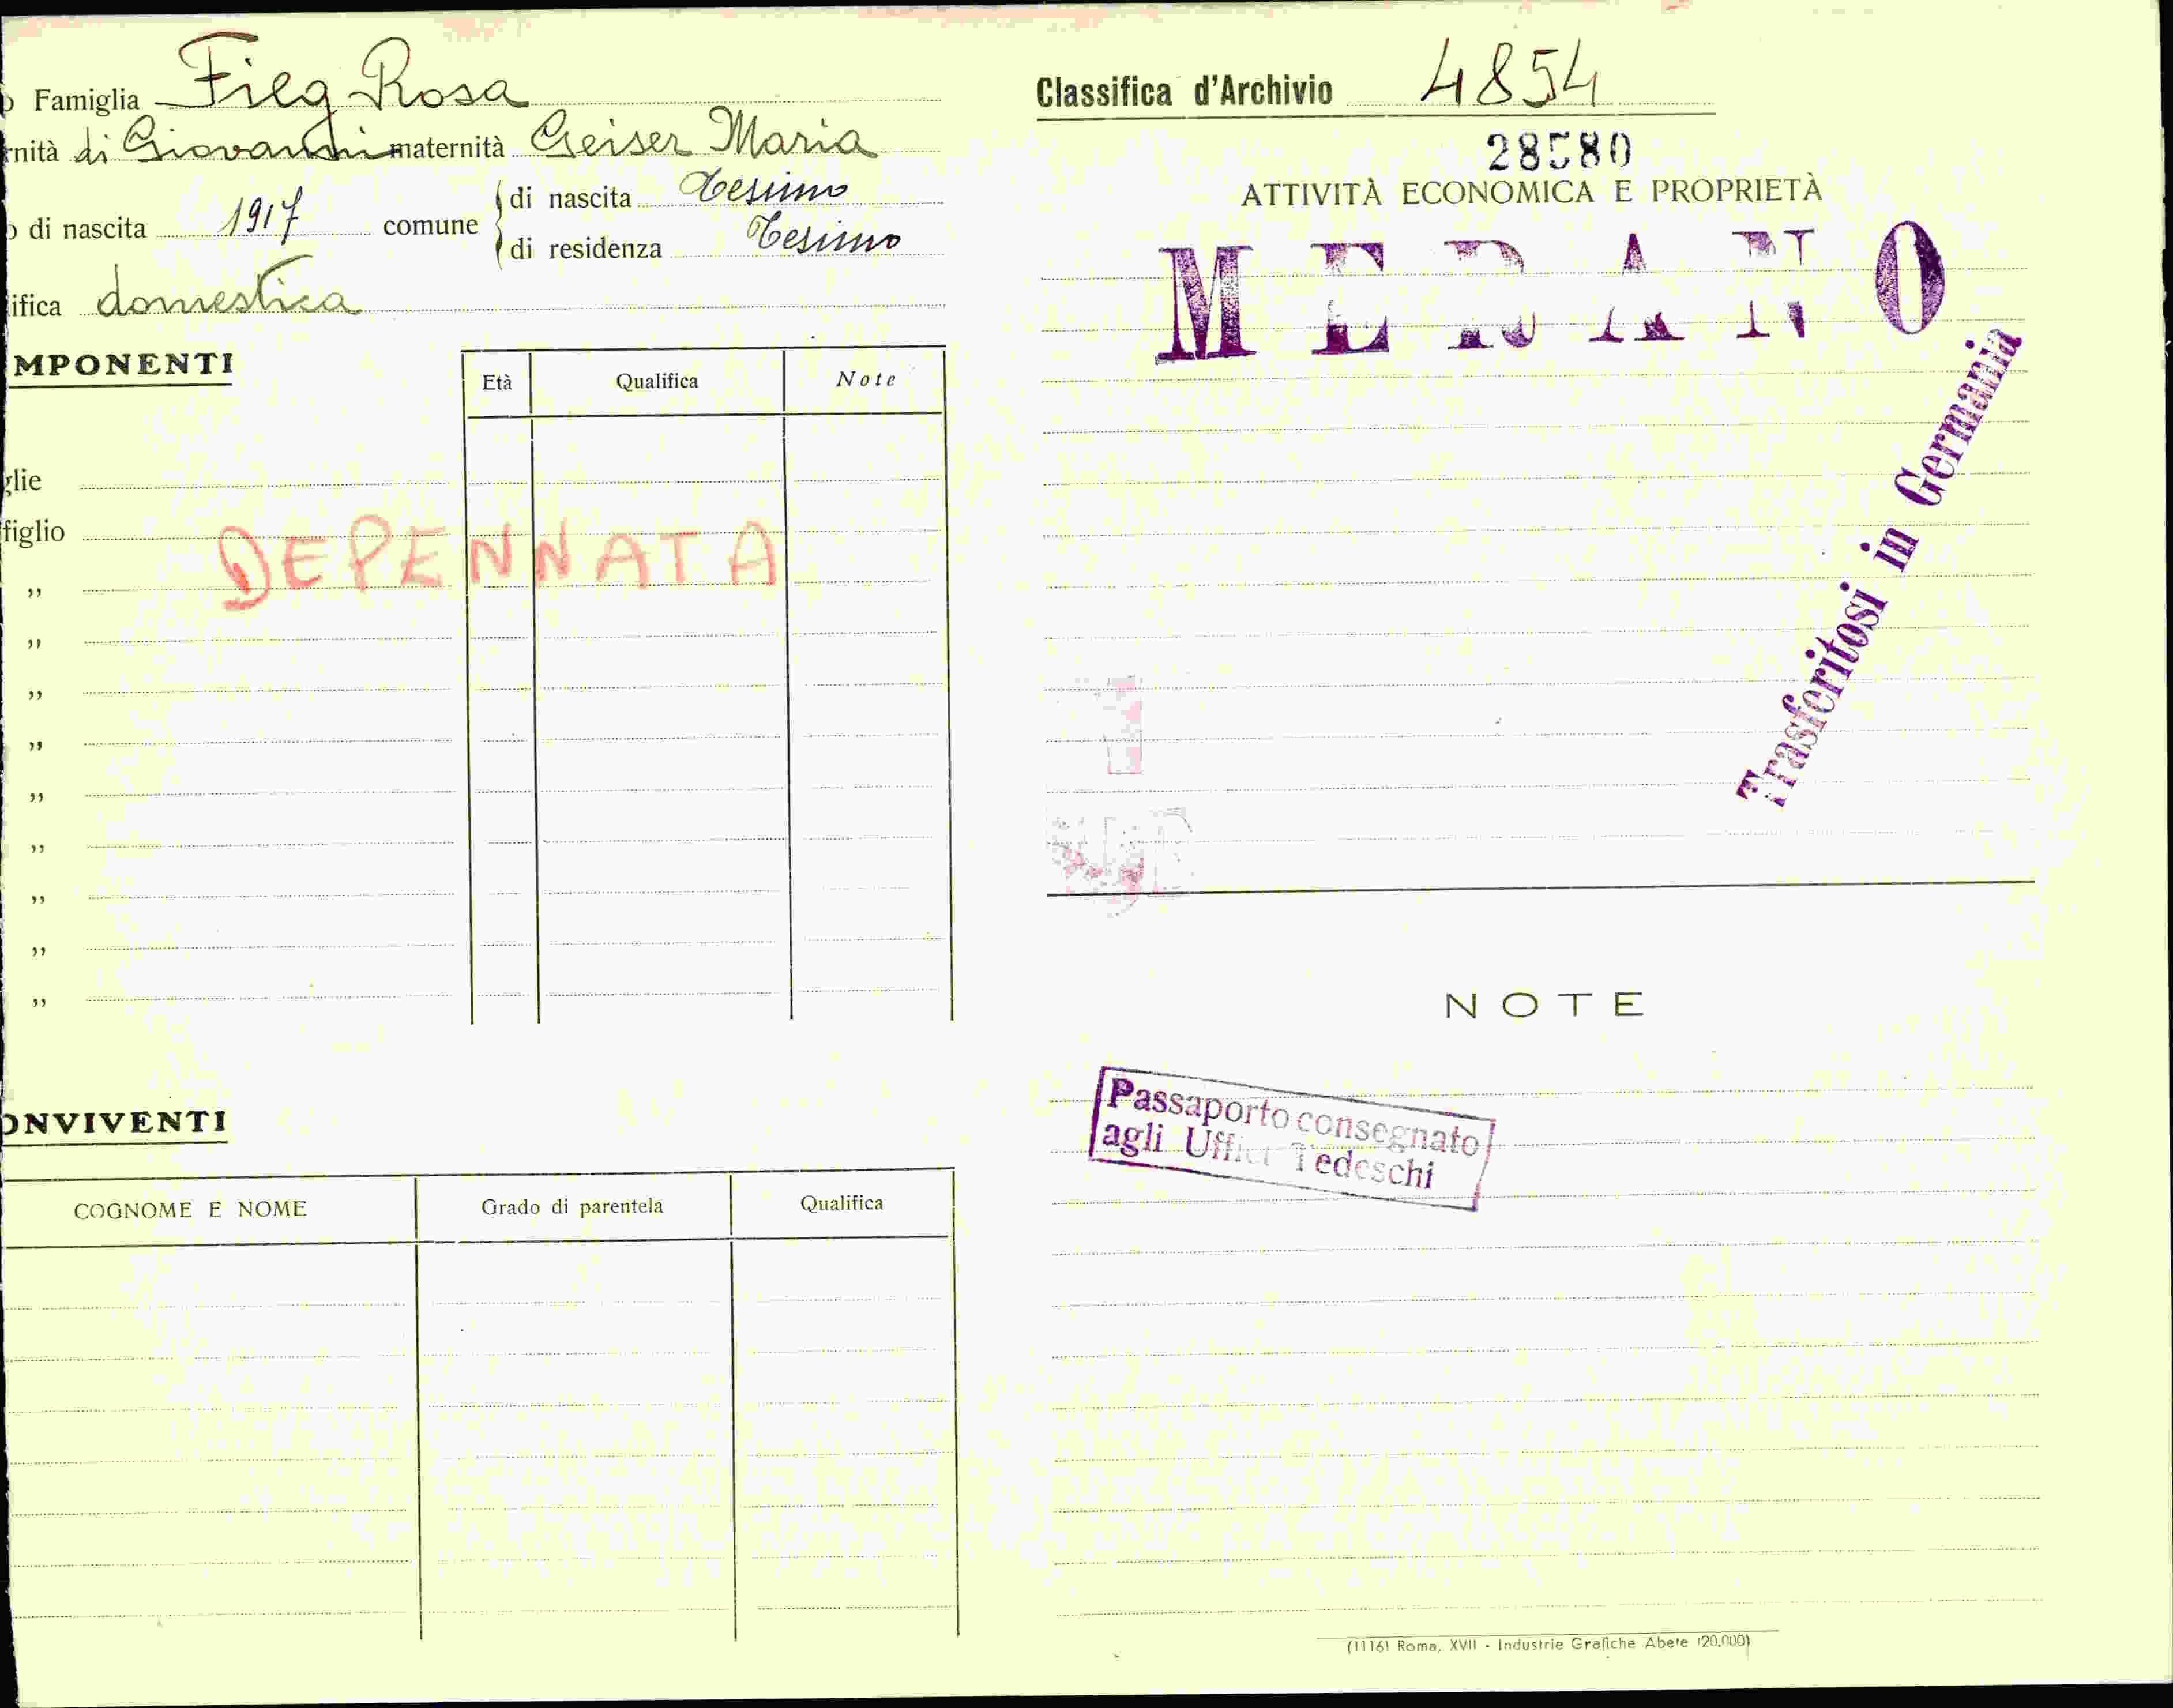 Famiglia Fieg Rosa
rnità di Giovanni maternità Geiser Maria
di nascita 1917 comune di nascita Tesimo
di residenza Tesimo
ifica domestica
MPONENTI
Età Qualifica Note
glie
figlio
DEPENNATA
„
„
„
„
„
„
„
„
„
ONVIVENTI
COGNOME E NOME Grado di parentela Qualifica
Classifica d'Archivio 4854
28580
ATTIVITÀ ECONOMICA E PROPRIETÀ
MERANO
Trasferitosi in Germania
NOTE
Passaporto consegnato
agli Uffici Tedeschi
(1116) Roma, XVII - Industrie Grafiche Abete (20.000)